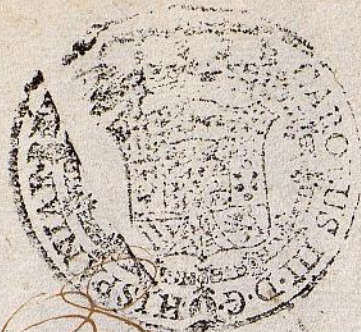 CAROLUS III. D. G. HISPANIAR